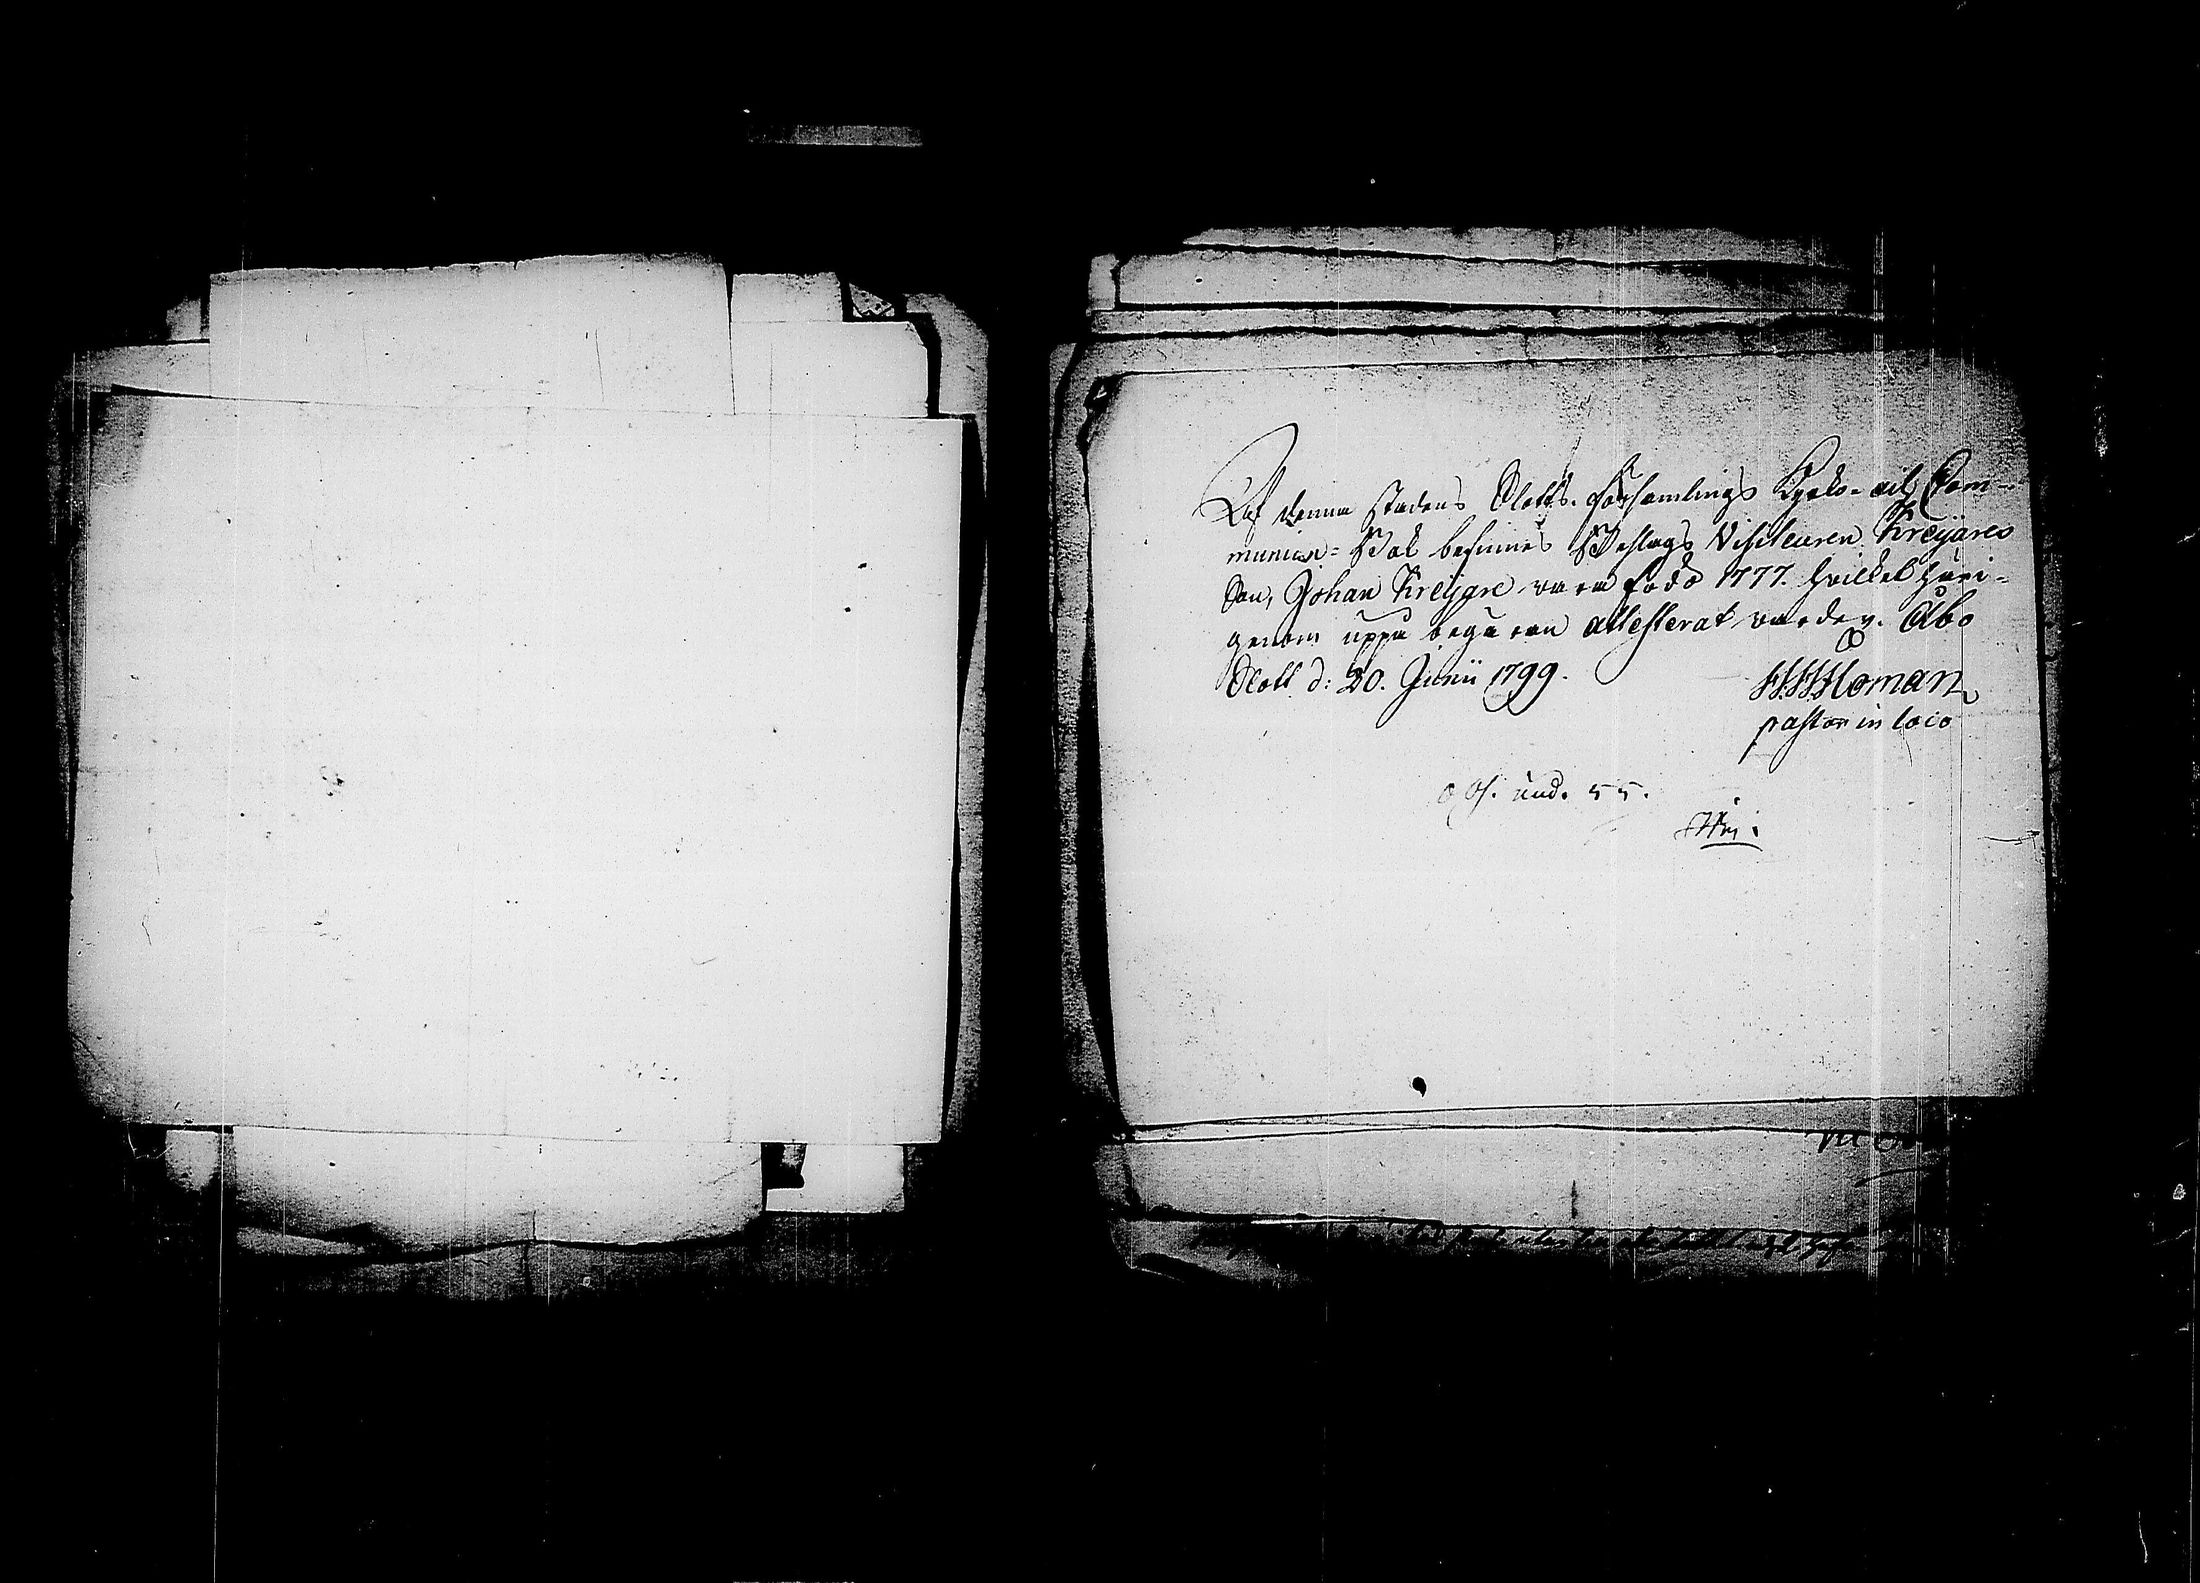 Af denna stadens Slotts-Församlings Kyrko- och Com=
munion-Bok befinnes Beslags Visiteuren Kreijares
Son, Johan Kreijare vara född 1777. hvilket häri=
genom uppå begäran attesterat varder. Åbo
Slott d: 20. Junii 1799.
Homan
pastor in loco
und. 55.